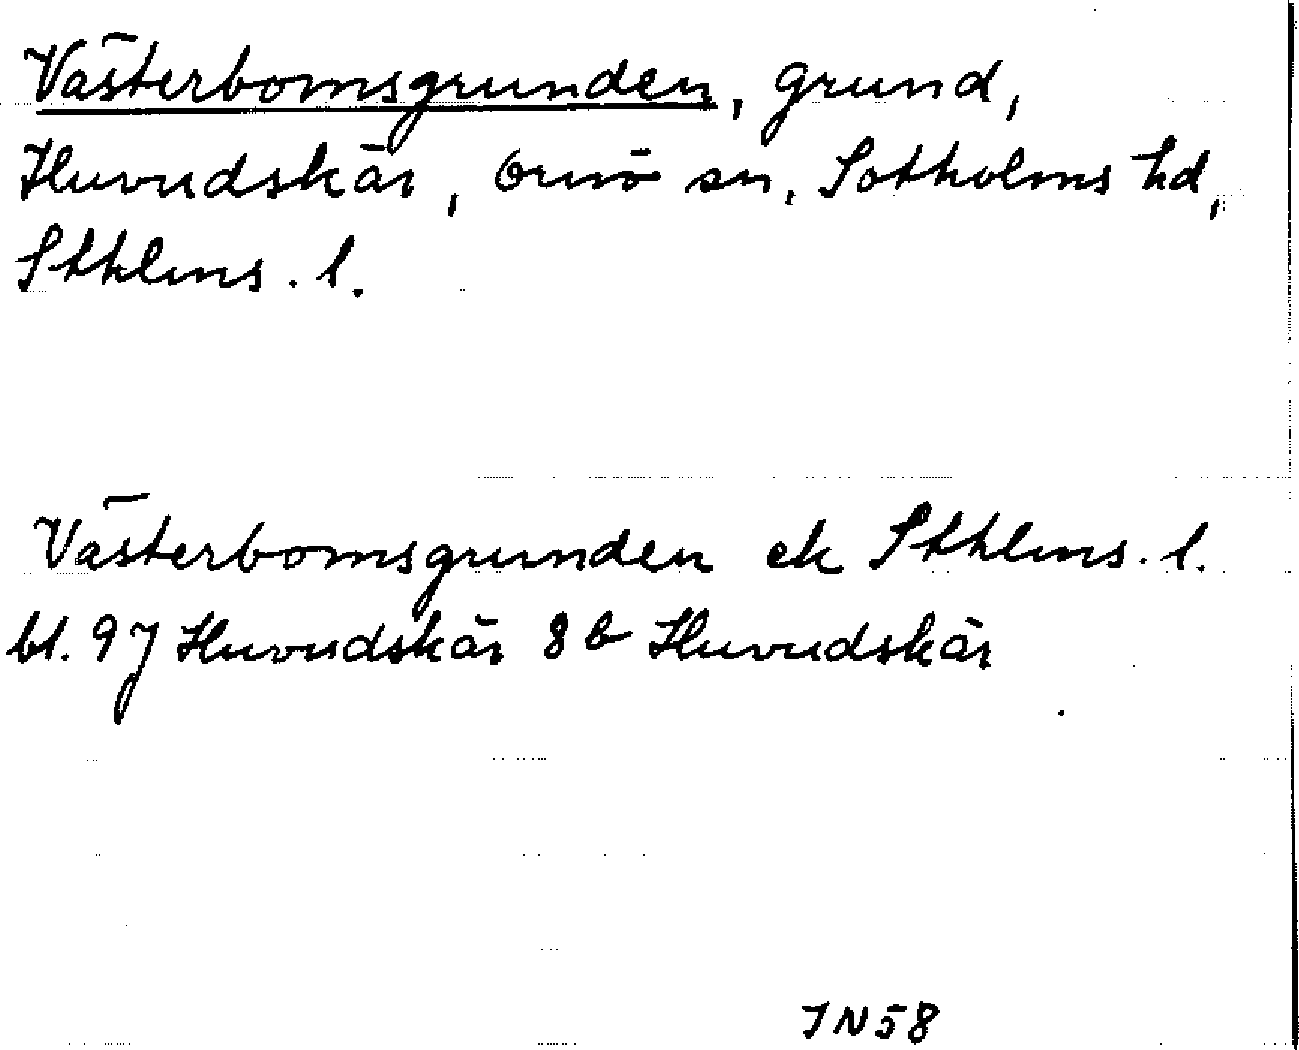 Västerbomsgrunden, grund,
Huvudskär, Ornö sn, Sotholms hd,
Sthlms. l.
Västerbomsgrunden ek Sthlms. l.
bl. 97 Huvudskär 8 b Huvudskär
IN58